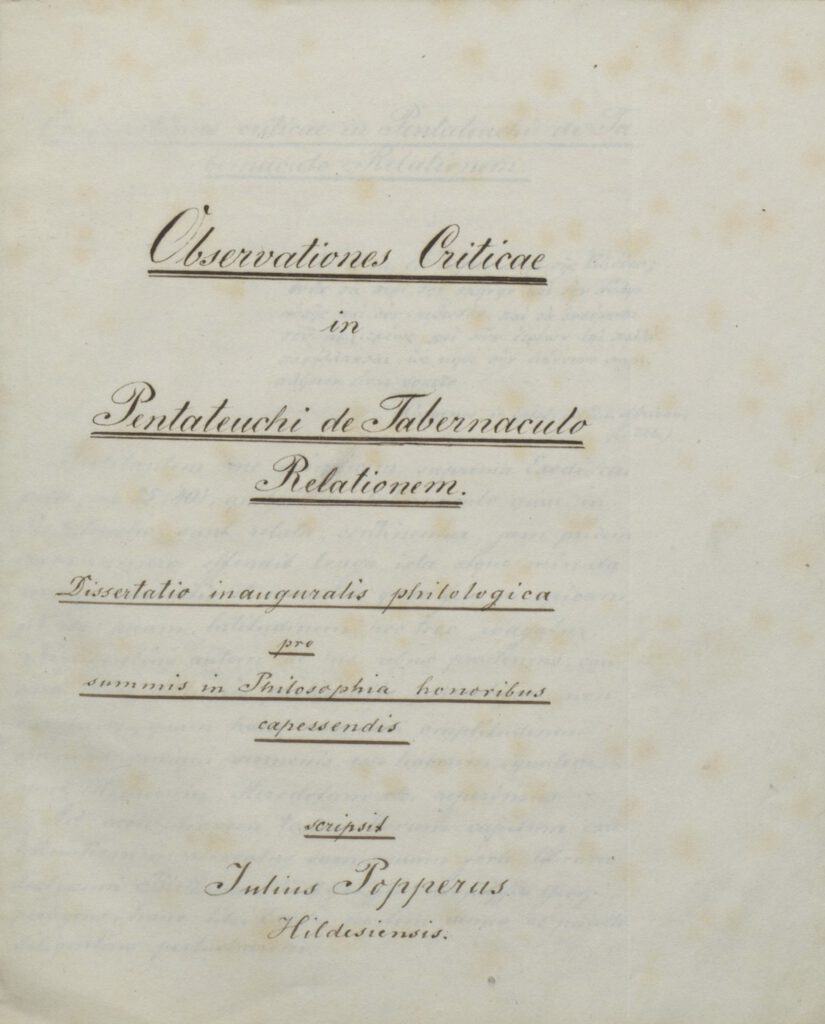 Observationes Criticae
in
Pentateuchi de Tabernaculo
Relationem.
Dissertatio inauguralis philologica
pro
summis in Philosophia honoribus
capessendis
scripsit
Julius Popperus
Hildesiensis.